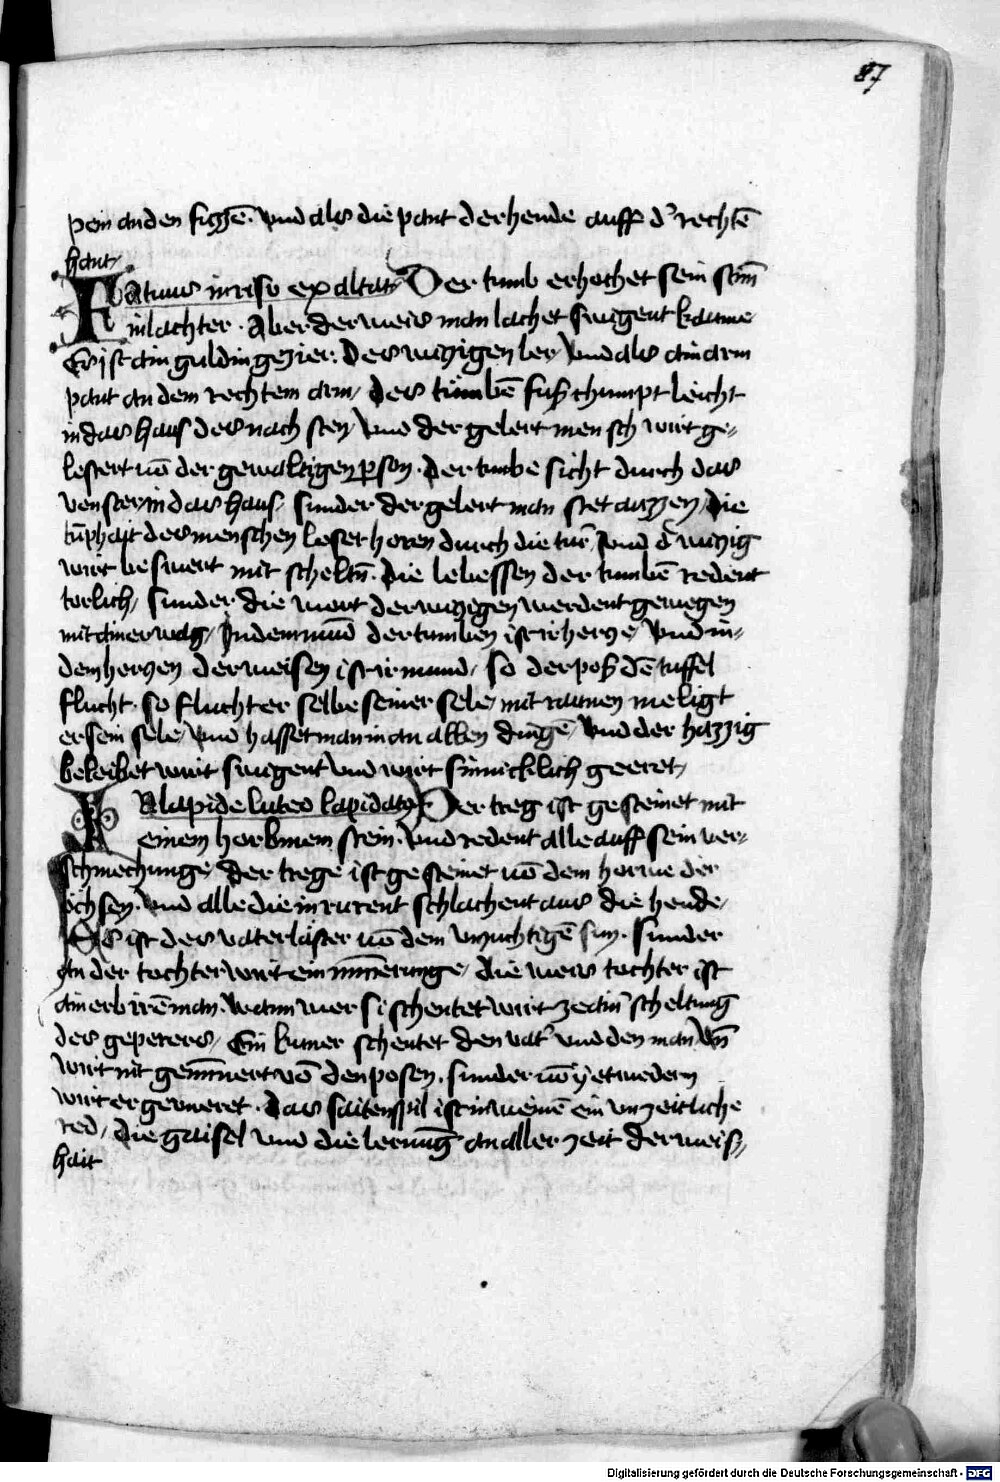 87
pein an den fuzzē. vnd als die pant der hende auff d' rechtē
hant,
Fatuus in risu exaltat, Der tumb erhochet sein stim̄
in lachter. Aber der weis man lachet swigent kaume
Es ist ain guldin gezier. des wiczigen ler, vnd als ain arm
pant an dem rechtem arm, des tumbē fuß chumpt leicht
in das haus des nach sten, vnd der gelert mensch wirt ge-
lestert uō der gewaltigen pson. der tumbe sicht durch das
venster in das haus, sunder der gelert man stet auzzen, die
tūphait des menschen loset horen durch die tur, vnd d' wiczig
wirt beswert mit scheltn̄. die lebessen der tumbē redent
torlich, sunder die wort der wiczigen werdent gewegen
mit ainer wag, In dem mūd der tumben ist ir hercze, vnd in-
dem herczen der weisen ist ir mund, so der poß dē tuffel
flucht. so flucht er selbe seiner sele, mit raunen meligt
er sein sele, vnd hasset man in an allen dingē, vnd der hazzig
beleibet wirt swigent vnd wirt sinnicklich geeret,
In lapide luteo lapidat9 Der treg ist gesteinet mit
einem horbinem stein. vnd redent alle auff sein ver-
schmechung, der trege ist gesteinet uō dem horwe der
ochsen. vnd alle die in rurent schlachent aus die hende,
Es ist des vater laster uō dem vnzuchtigē sun. sunder
an der tochter wirt ein mīnerunge, die weis tochter ist
ain erb irē man. wann wer si schentet wirt ze ain' scheltung
des geperers, Ein kuner schentet den vat' vnd den man vn̄
wirt nit gemīnert vō den posen. sunder uō yetwedern
wirt er geuneret. das saitenspil ist in weinē ein vnzeitliche
red, die gaisel vnd die lernūg an aller zeit der weis-
hait
Digitalisierung gefördert durch die Deutsche Forschungsgemeinschaft - DFG